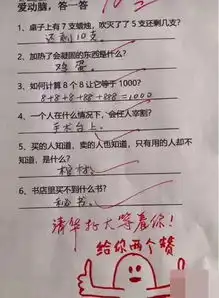 爱动脑，答一答
1、桌子上有7支蜡烛，吹灭了了5支还剩几支？
还剩10支。
2、加热了会凝固的东西是什么？
鸡蛋。
3、如何计算8个8让它等于1000？
8+8+8+88+888=1000
4、一个人在什么情况下，会任人宰割？
手术台上。
5、买的人知道，卖的人也知道，只有用的人却不知道，是什么？
棺材。
6、书店里买不到什么书？
秘书。
清华北大等着你！
给你两个赞